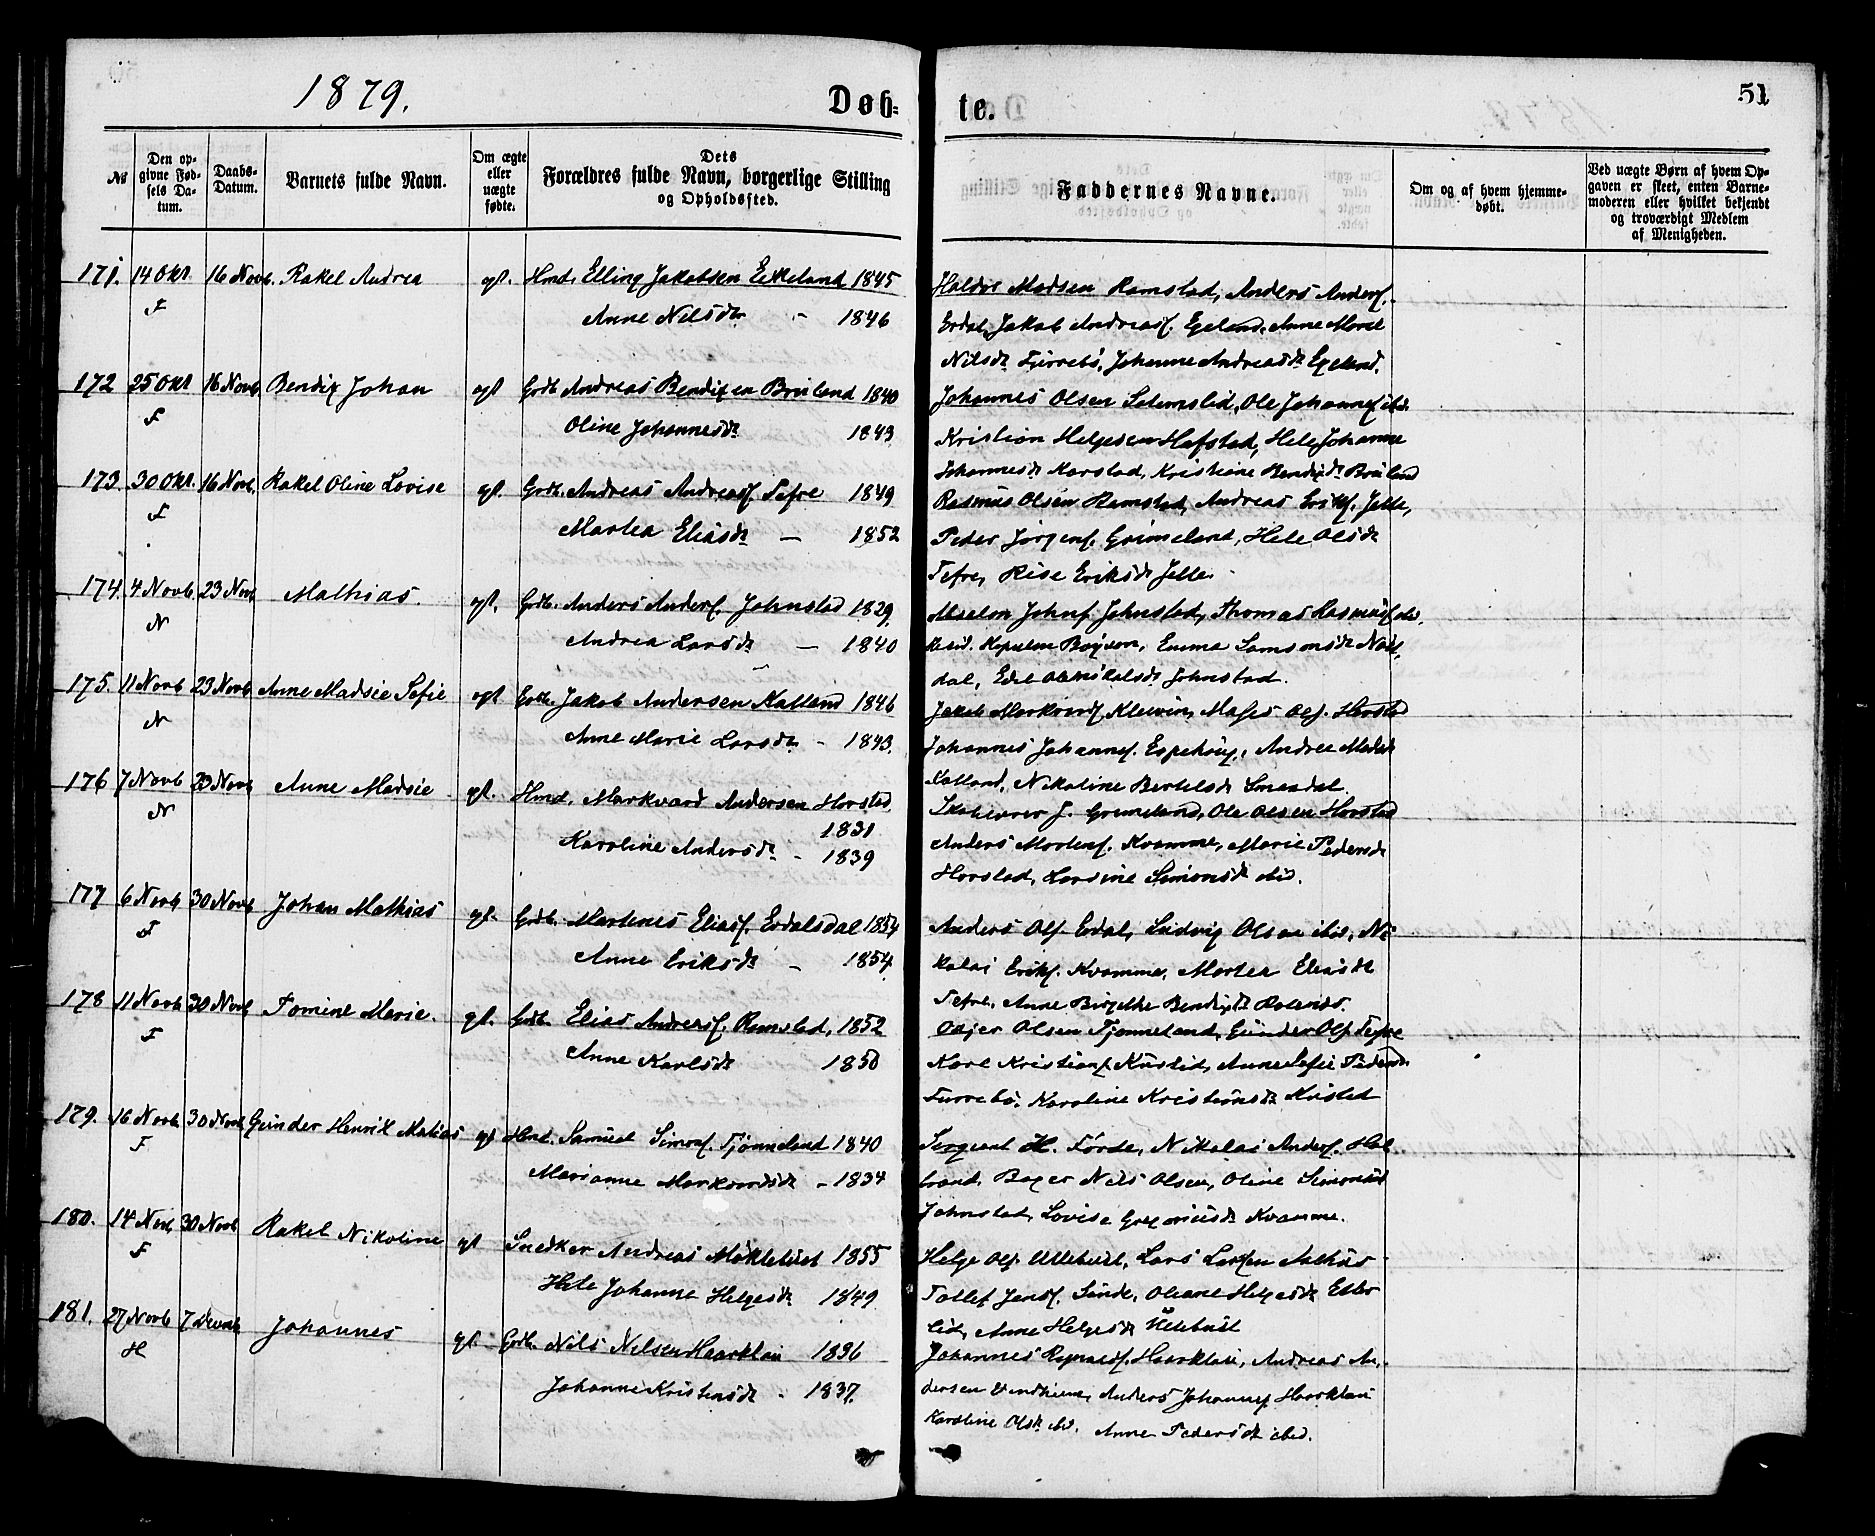 1879.
Døb-
te.
51
№
Den op-
givne Fød-
sels Da-
tum.
Daabs-
Datum.
Barnets fulde Navn.
Om ægte
eller
uægte
fødte.
Dets
Forældres fulde Navn, borgerlige Stilling
og Opholdssted.
Faddernes Navne.
Om og af hvem hjemme-
døbt.
Ved uægte Børn af hvem Op-
gaven er skeet, enten Barne-
moderen eller hvilket bekjendt
og troværdigt Medlem
af Menigheden.
171. 14 Okt. 16 Novb. Rakel Andrea ægt. Hmd. Elling Jakobsen Eikeland 1845
F Anne Nilsdr - 1846
Haldor Madsen Ramstad, Anders Anders.
Erdal, Jakob Andreass. Egeland, Anne Marie
Nilsdr Furrebø, Johanne Andreasdr Egeland.
172 25 Okt 16 Novb Bendix Johan ægt Grdb. Andreas Bendixen Bruland 1840
F Oline Johannesdr 1843
Johannes Olsen Solemslid, Ole Johanness ibd.
Kristian Helgesen Hafstad, Hele Johanne
Johannesdr Karstad, Kristiane Bendixdr Bruland
173. 30 Okt. 16 Novb. Rakel Oline Lovise ægt. Grdb. Andreas Andreass. Tefre 1849
F Martea Eliasdr — 1852
Rasmus Olsen Ramstad, Andreas Eriks. Jelle,
Peder Jørgens. Grimeland, Hele Olsdr
Tefre, Elise Eriksdr Jelle.
174. 4 Novb. 23 Novb Mathias. ægt. Grdb. Anders Anders. Johnstad 1829.
N Andrea Larsdr — 1840
Absalon Johns. Johnstad, Thomas Rasmuss ibd.
Resid. Kapellan Bøgvad, Emma Samsonsdr Naul-
dal, Edel Olena Nikolsdr Johnstad.
175. 11 Novb 23 Novb Anne Madsie Sofie ægt Grdb. Jakob Andersen Kalland 1846
N Anne Marie Larsdr - 1843.
Jakob Markvards Kleivin, Moses Ols. Horstad
Johannes Johanness. Espehoug, Andrea Madsdr
Kalland, Nikoline Bertelsdr Smaadal.
176 7 Novb 23 Novb Anne Madsie ægt. Hmd. Markvard Andersen Horstad
N 1831
Karoline Andersdr - 1839
Skolelærer J. Grimeland, Ole Olsen Horstad
Anders Mortens. Kvamme, Marie Pedersdr
Horstad, Larsine Simonsdr ibid.
177 6 Novb 30 Novb Johan Mathias ægt. Grdb. Martenes Eliass. Erdalsdal 1854
F Anne Eriksdr - 1854.
Anders Ols Erdal, Ludvig Olsen ibd., Ni-
kolai Eriks. Kvamme, Martea Eliasdr
Tefre, Anne Birgithe Bendixdr Roland.
178 11 Novb 30 Novb Tomine Marie. ægt. Grdb. Elias Andreass. Ramstad, 1852
F Anne Karlsdr 1850
Asjer Olsen Tjønneland, Gunder Ols Tefre
Karl Kristians Kusslid, Anne Sofie Pedersdr
Furrebø. Karoline Kristiansdr Kuslid
179. 16 Novb. 30 Novb Gunder Henrik Matias ægt Hmd. Samuel Simons. Tjønneland 1840
F Marianne Markvardsdr - 1834
Sergeant H. Førde, Nikolai Anders. Hal-
brand, Bager Nils Olsen, Oline Simonsdr
Johnstad, Lovise Gregoriusdr Kvamme.
180. 14 Novb 30 Novb Rakel Nikoline ægt Snedker Andreas Møklebust 1855
F Hele Johanne Helgesdr 1849
Helge Ols. Ullebust, Lars Larsen Aalhus
Tollef Jens. Sunde, Oliane Helgesdr Ester-
lid, Anne Helgesdr Ullebust
181. 27 Novb 7 Decemb Johannes ægt. Grdb. Nils Nilsen Haarklau 1836
H Johanne Kristensdr - 1837.
Johannes Rognalds. Haarklau, Andreas An-
dersen Vindheim, Anders Johanness Haarklau
Karoline Olsdr ibd. Anne Pedersdr ibid.